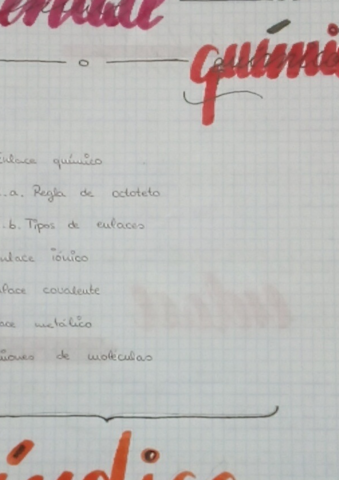 químic
Enlace químico
.a. Regla de octoteto
.b. Tipos de enlaces
nlace iónico
nlace covalente
ace metálico
uniones de moléculas
índice